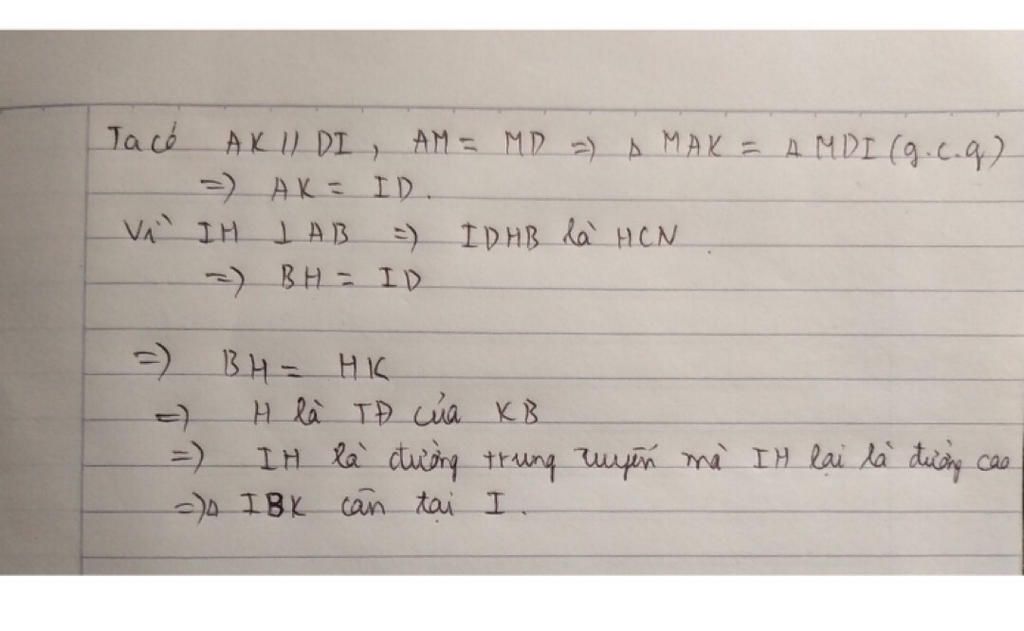 Ta có AK // DI, AM = MD => Δ MAK = Δ MDI (g.c.g)
=> AK = ID.
Vì IH ⊥ AB => IDHB là HCN.
=> BH = ID
=> BH = HK
=> H là TĐ của KB
=> IH là đường trung tuyến mà IH lại là đường cao
=> Δ IBK cân tại I.